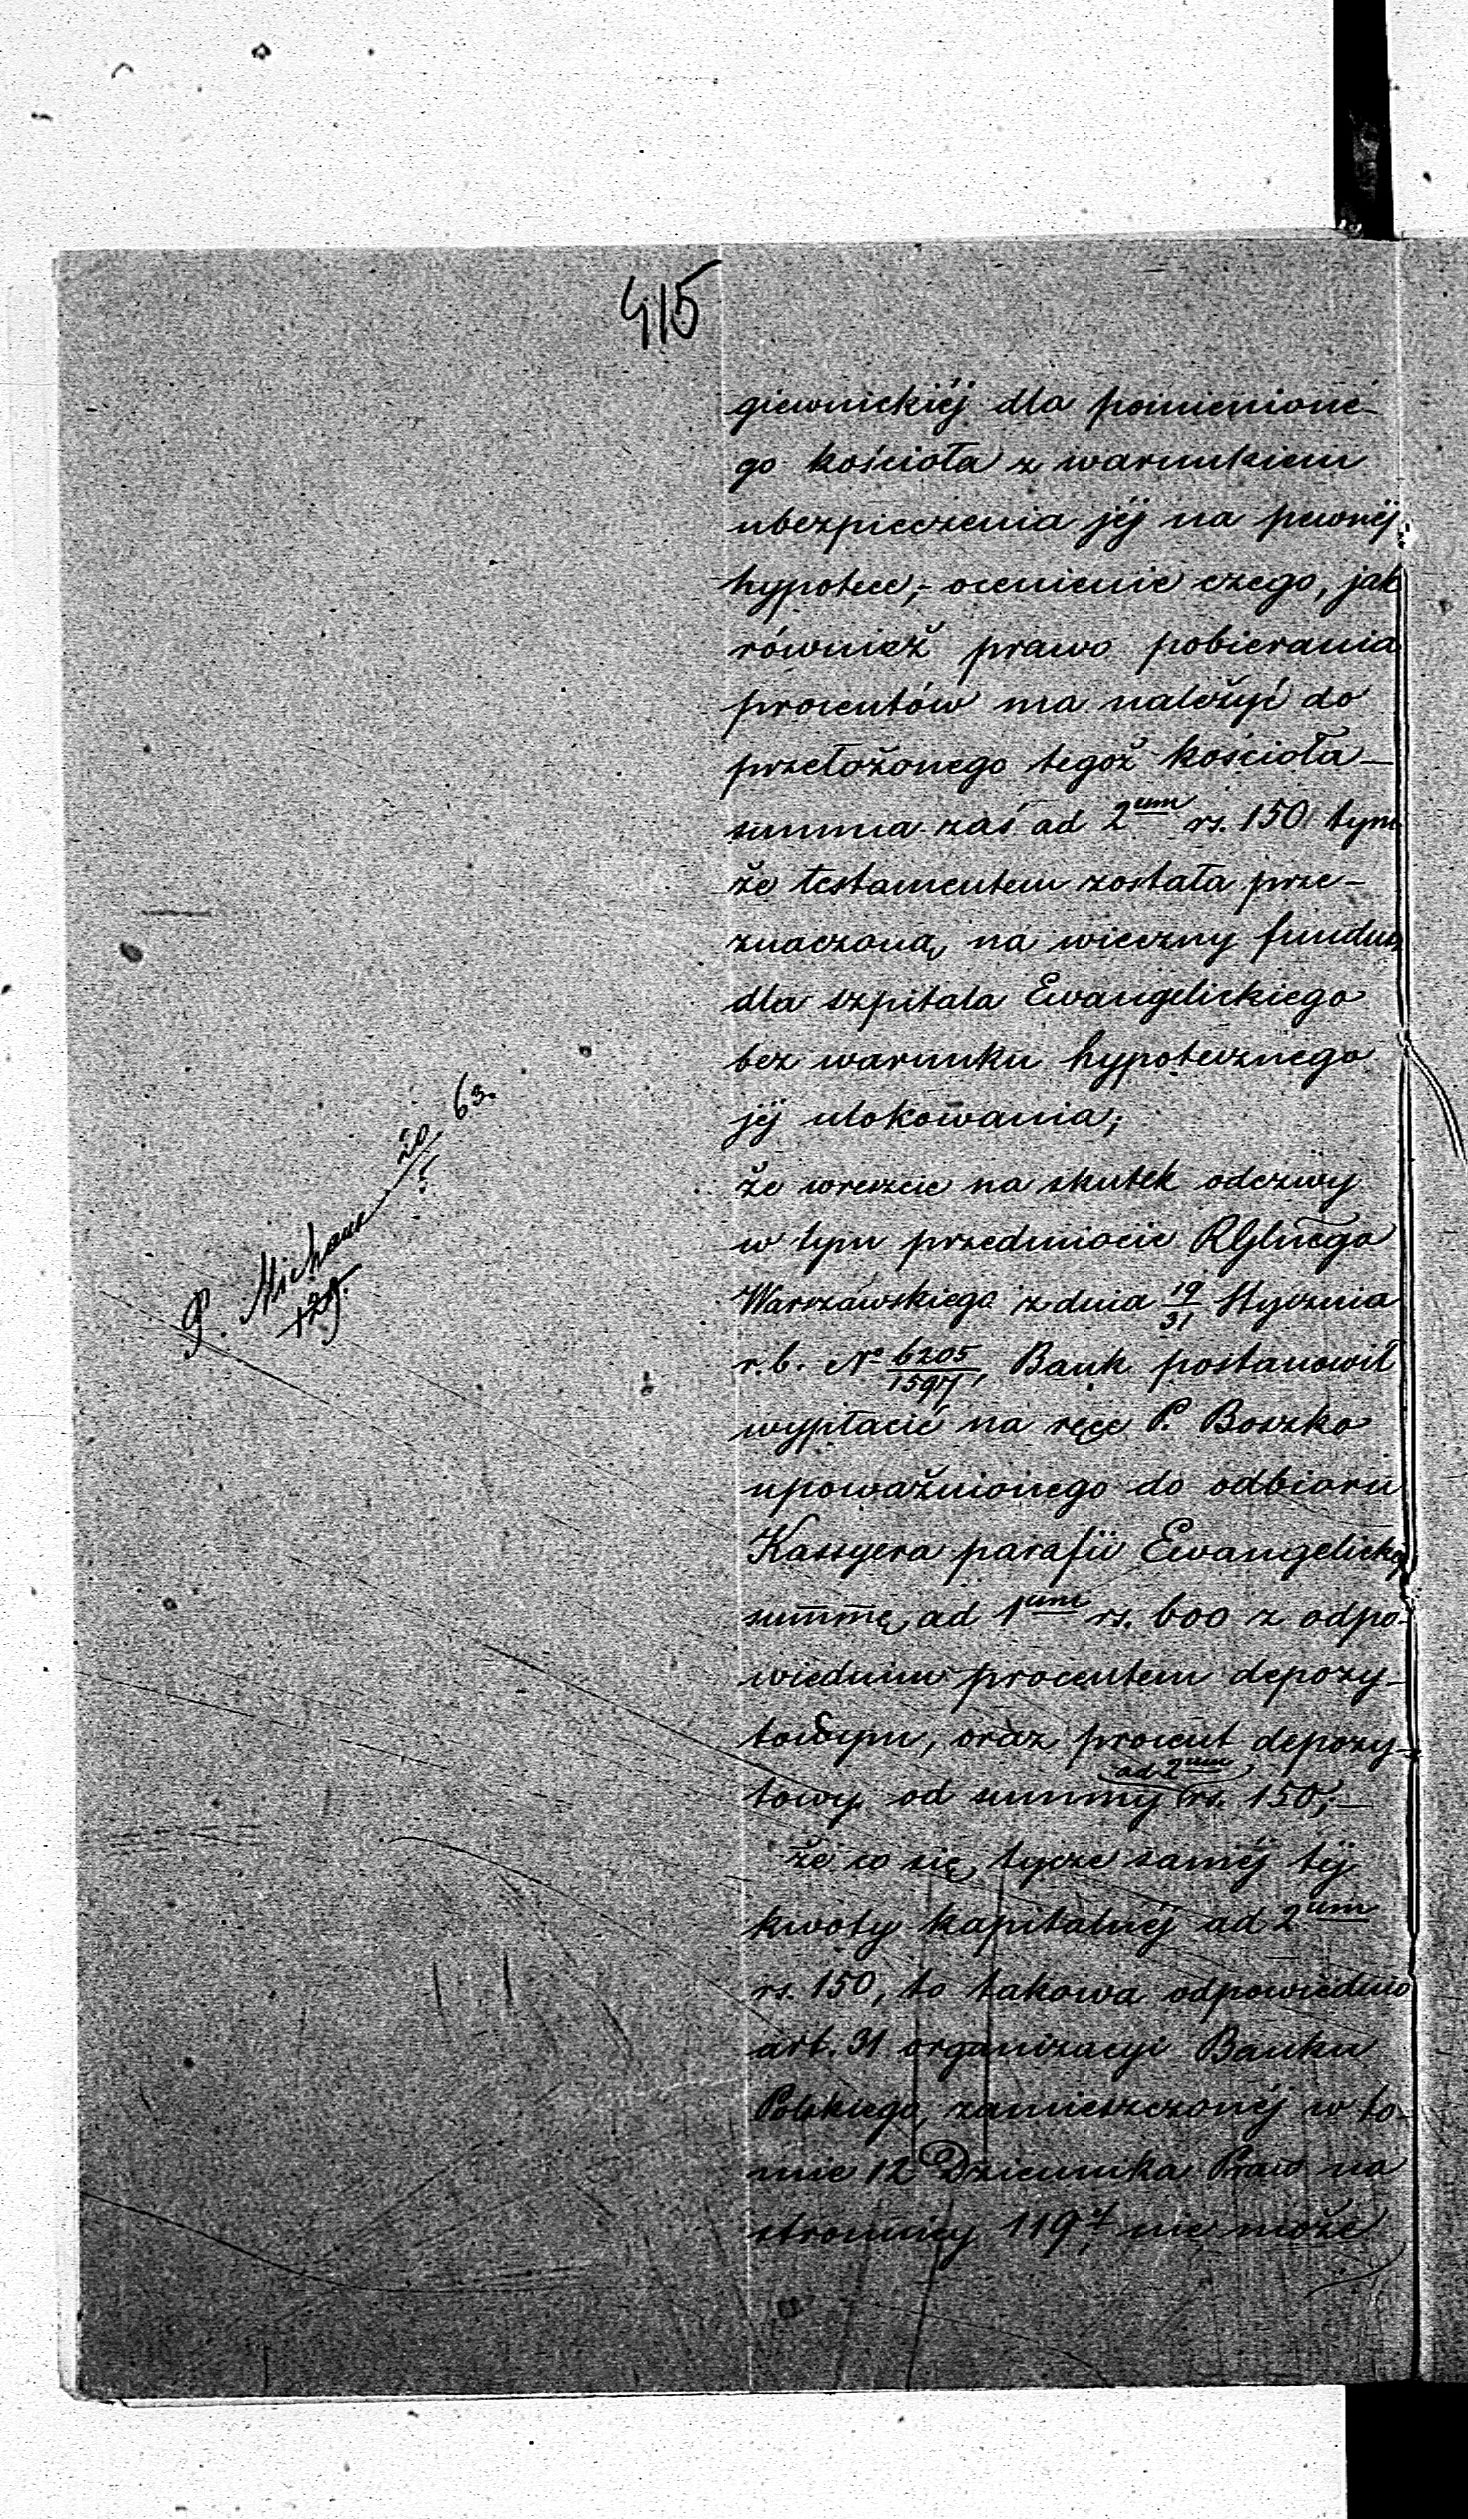 415
giewnickiéj dla pomienione-
go kościoła z warunkiem
ubezpieczenia jéj na pewnéj
hypotece;- ocenienie czego, jak
również prawo pobierania
procentów ma należyć do
przełożonego tegoż kościoła—
summa zaś ad 2um rs. 150 tym
że testamentem została prze-
znaczoną na wieczny fundusz
dla szpitala Ewangelickiego
bez warunku hypotecznego
jéj ulokowania;
że wreszcie na skutek odezwy
w tym przedmiocie RGlnego
Warszawskiego z dnia 19/31 Stycznia
r. b. No 6205/1597, Bank postanowił
wypłacić na ręce P. Boszko
upoważnionego do odbioru
Kassyera parafii Ewangelickéj
summę ad 1um rs. 600 z odpo-
wiednim procentem depozy-
towym, oraz procent depozy-
ad 2um
towy od summy rs. 150;—
że co się tycze saméj téj
kwoty kapitalnéj ad 2um
rs. 150, to takowa odpowiednio
art. 31 organizacyi Banku
Polskiego, zamieszczonéj w to-
mie 12 Dziennika Praw na
stronnicy 119éj, nie może
P. 20/ 63.